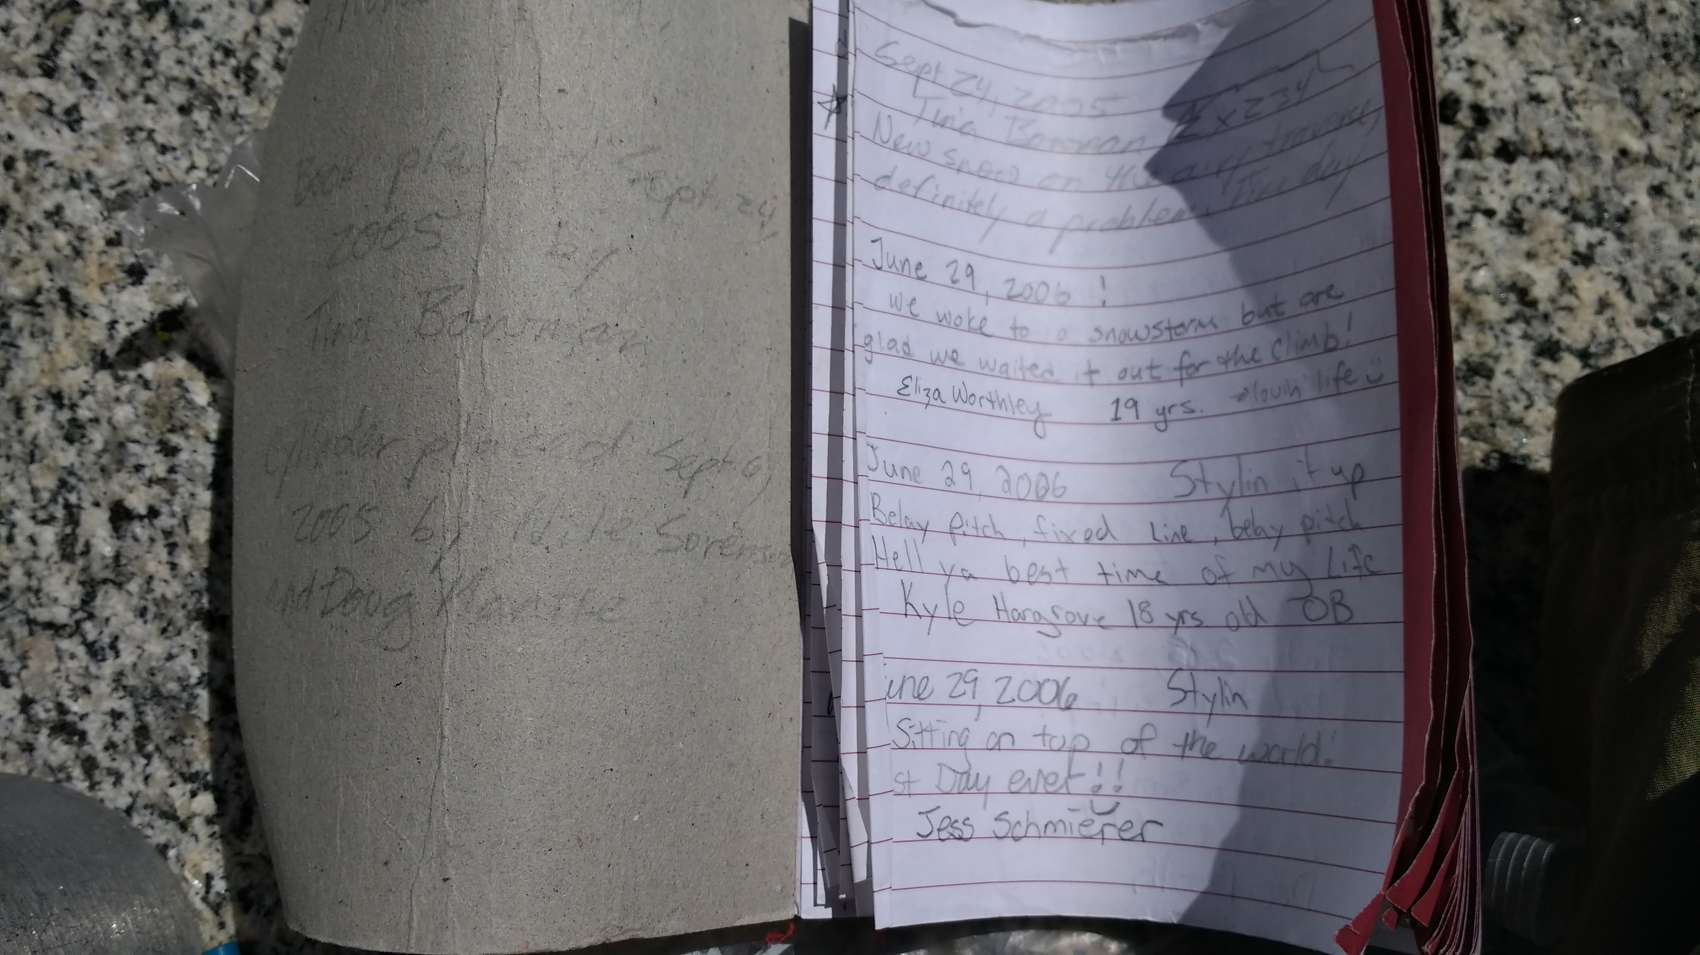 Book placed Sept. 24
2005 by
Tina Bowman
Cylinder placed Sept 6,
2005 by Sorenson
and Doug Mantle
Sept 24, 2005
Tina Bowman
New snow on the traverse,
definitely a problem. Fine day
June 29, 2006 !
we woke to a snowstorm but are
glad we waited it out for the climb!
Eliza Worthley 19 yrs. lovin' life
June 29, 2006 Stylin it up
Belay pitch, fixed Line, belay pitch
Hell ya best time of my Life
Kyle Hargrove 18 yrs old OB
une 29, 2006 Stylin
Sitting on top of the world!
st Day ever!!
Jess Schmierer